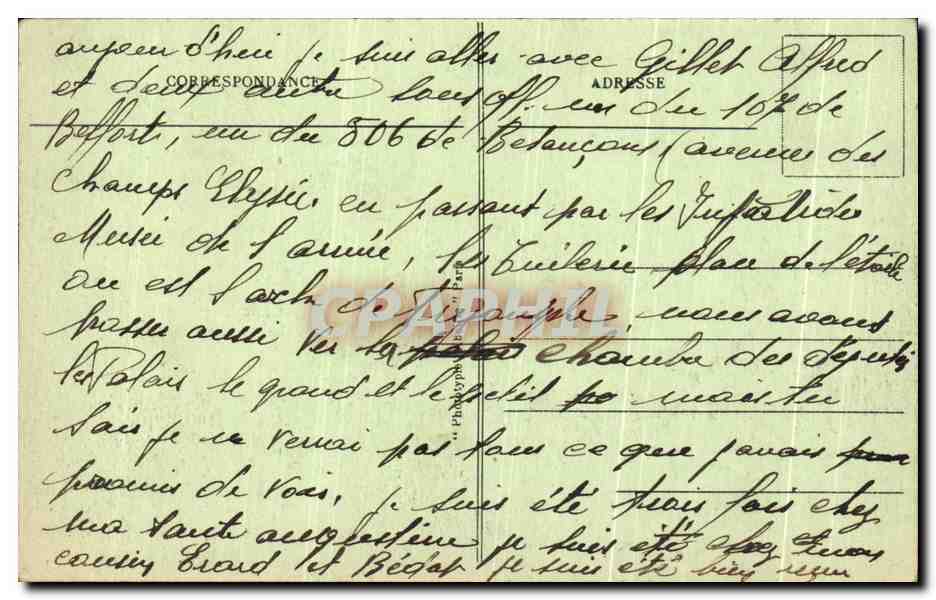 aujour d'hui je suis aller avec Gillet Alfred
CORRESPONDANCE ADRESSE
et deux autre sous off. un du 107 de
Belfort, un du 506 de Besançons (avenue des
Champs Elysée en passant par les Invalides
Musée de l'armée, les Tuilerie place de l'étoile
ou est l'arc de Triomphe, nous avons
passer aussi vers la chambre des députés
les Palais le grand et le petit mais tu
sais je ne verrai pas tous ce que javais
promis de voir, je suis été trois fois chez
ma tante augustine je suis été chez
cousin Erard et Bédat je suis été bien reçu
"Phototypie "Paris
CPARHIL